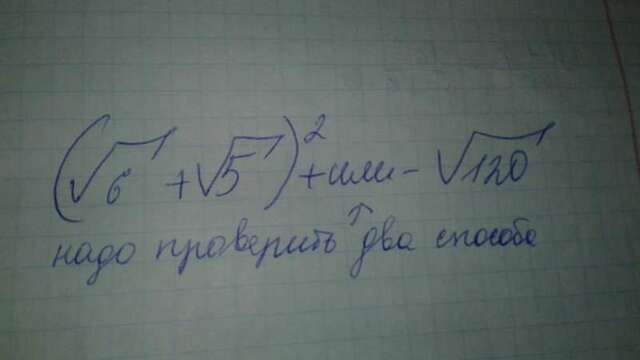 (√6 + √5)² + или - √120
надо проверить ↑ два способа